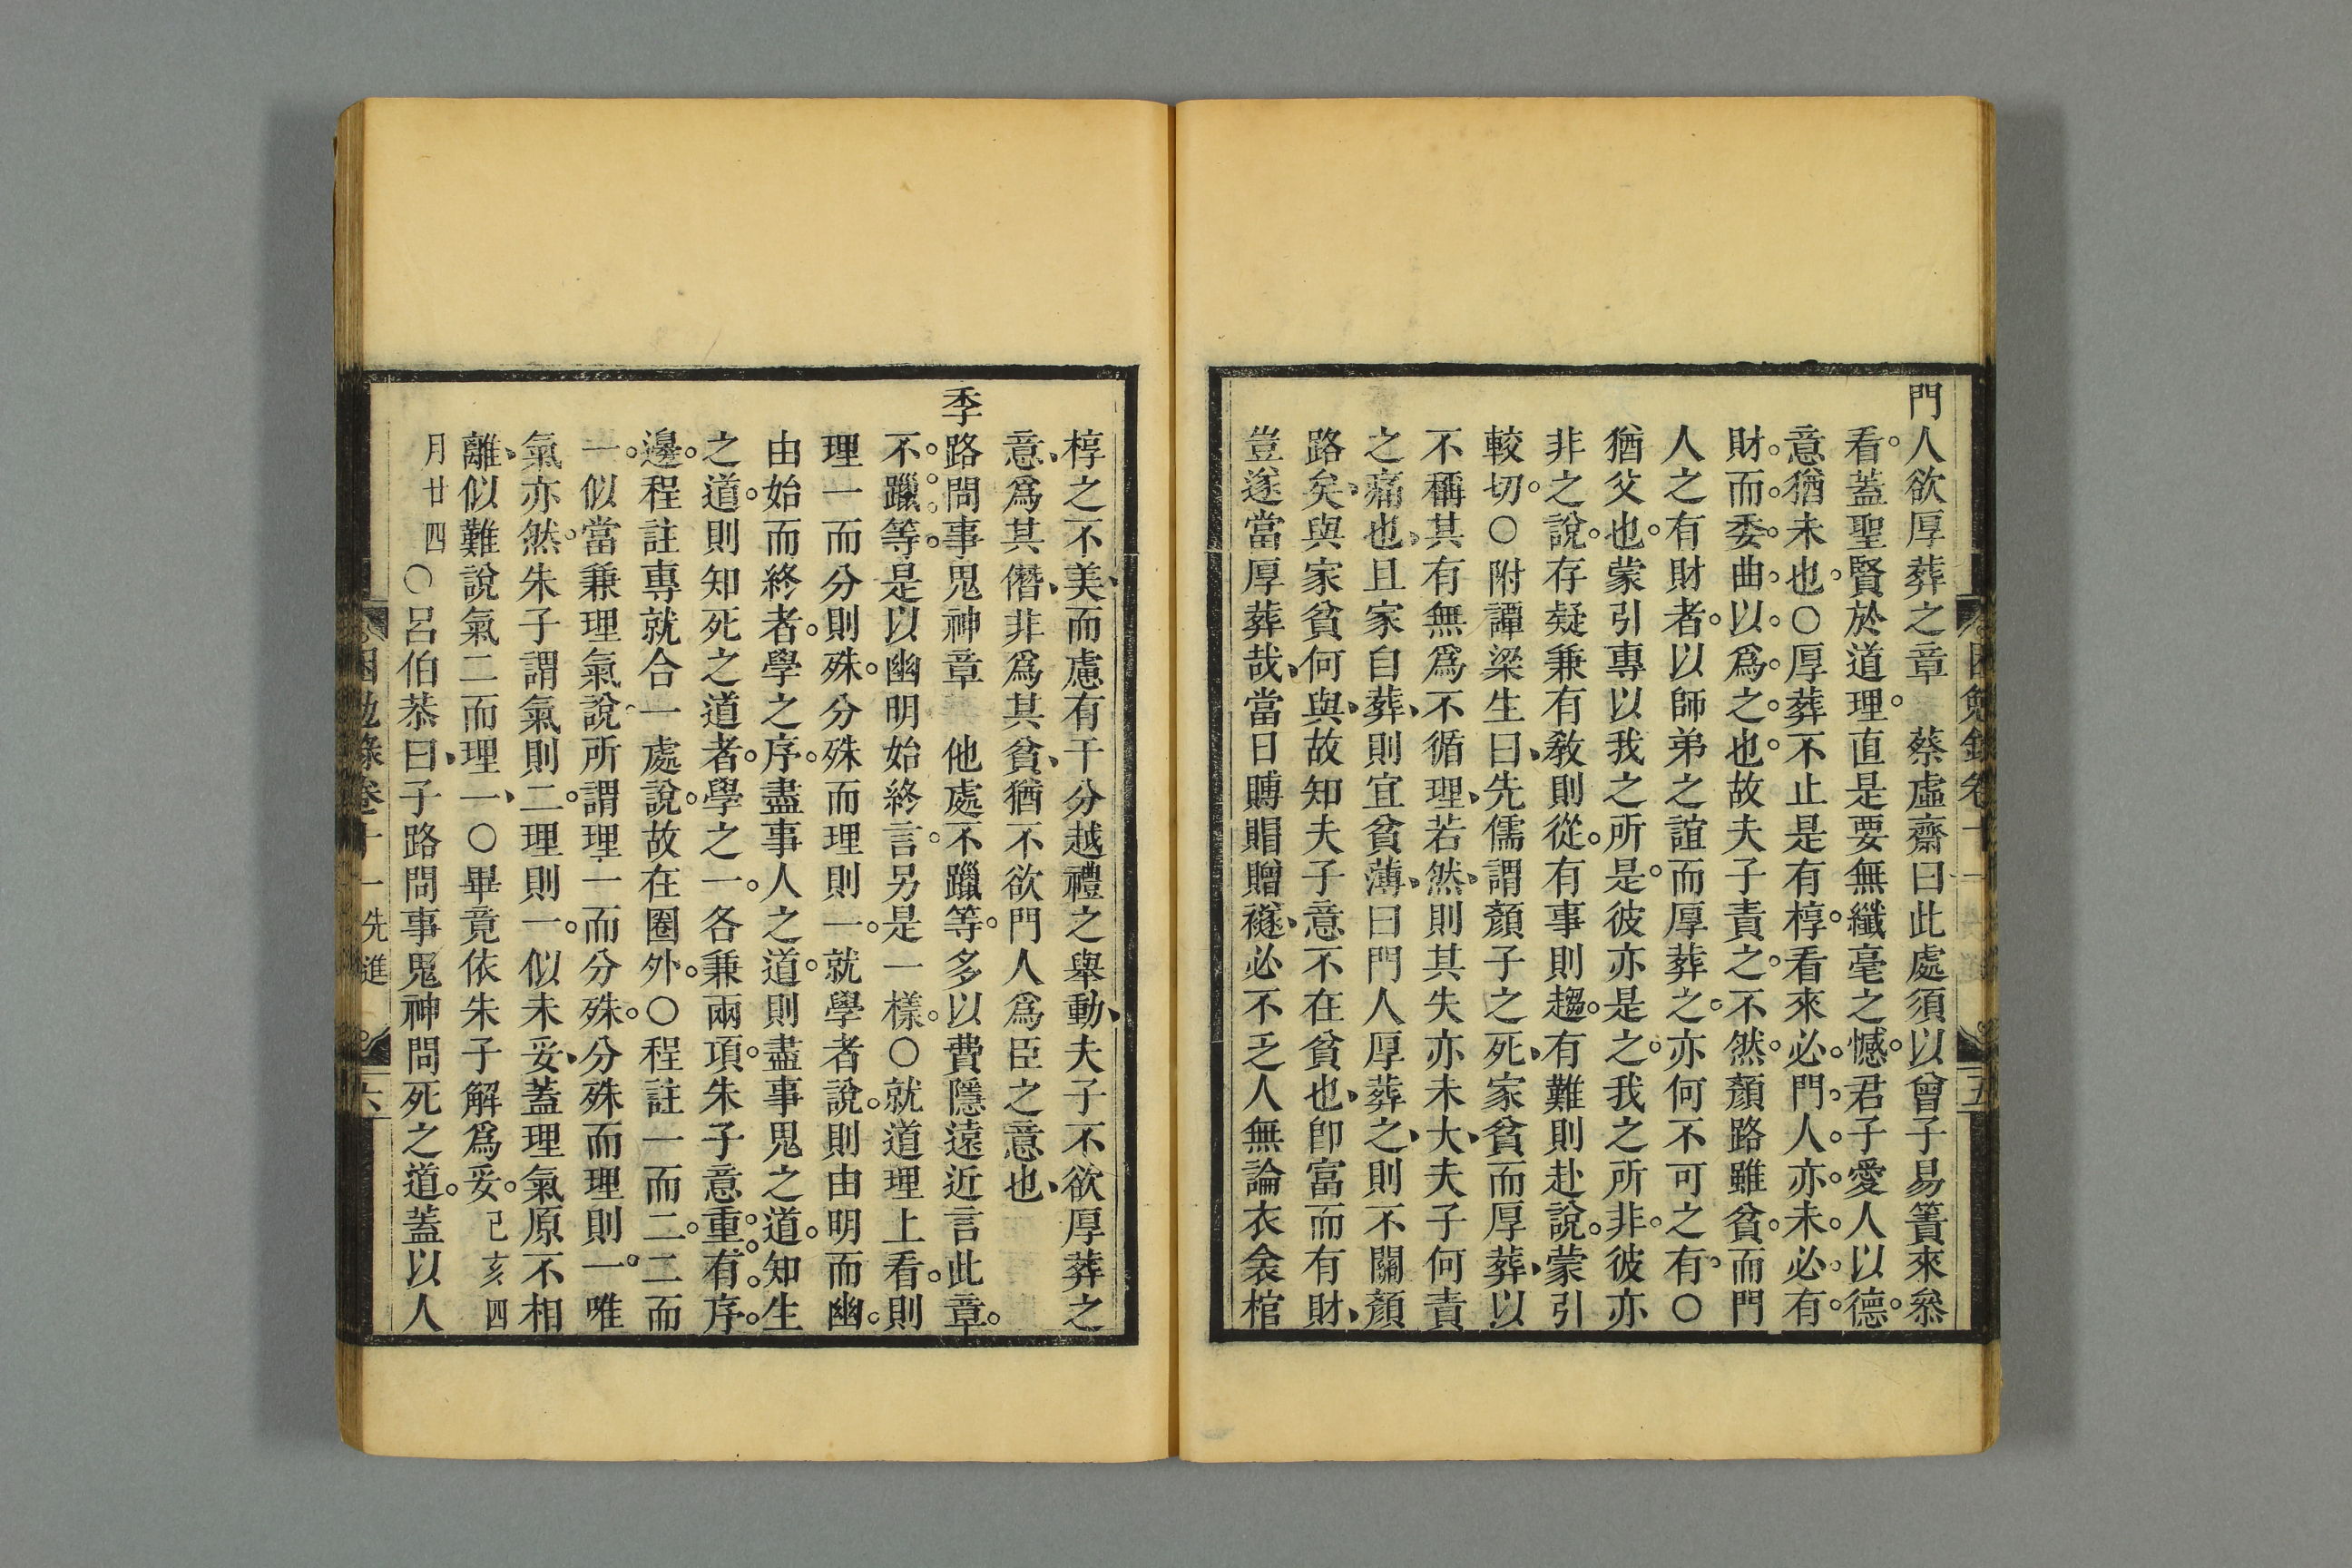 門人欲厚葬之章　蔡虛齋曰此處須以曾子易簀來叅
看。蓋聖賢於道理。直是要無纖毫之憾。君子愛人以德。
意猶未也。○厚葬不止是有椁。看來必。門。人。亦。未。必。有。
財。而。委。曲。以。爲。之。也。故夫子責之。不然。顏路雖貧。而門
人之有財者。以師弟之誼而厚葬之。亦何不可之有。○
猶父也。蒙引專以我之所是。彼亦是之。我之所非。彼亦
非之說。存疑兼有敎則從。有事則趨。有難則赴說。蒙引
較切。○附譚梁生曰、先儒謂顏子之死、家貧而厚葬、以
不稱其有無爲不循理、若然、則其失亦未大、夫子何責
之痛也、且家自葬、則宜貧薄、曰門人厚葬之、則不關顏
路矣、與家貧何與、故知夫子意不在貧也、卽富而有財、
豈遂當厚葬哉、當日賻賵贈襚、必不乏人無論衣衾棺
椁之不美、而慮有干分越禮之舉動、夫子不欲厚葬之
意、爲其僭、非爲其貧、猶不欲門人爲臣之意也、
季路問事鬼神章　他處不躐等。多以費隱遠近言此章。
不。躐。等。是以幽明始終言。另是一樣。○就道理上看。則
理一而分則殊。分殊而理則一。就學者說。則由明而幽。
由始而終者。學之序。盡事人之道。則盡事鬼之道。知生
之道。則知死之道者。學之一。各兼兩項。朱子意重。有。序。
邊。程註專就合一處說。故在圈外。○程註一而二。二而
一。似當兼理氣說所謂理一而分殊。分殊而理則一。唯
氣亦然。朱子謂氣則二。理則一。似未妥、蓋理氣原不相
離、似難說氣二而理一、○畢竟依朱子解爲妥。己亥四
月廿四○呂伯恭曰、子路問事鬼神問死之道。蓋以人
困勉錄卷十一先進　五
困勉錄卷十一先進　六